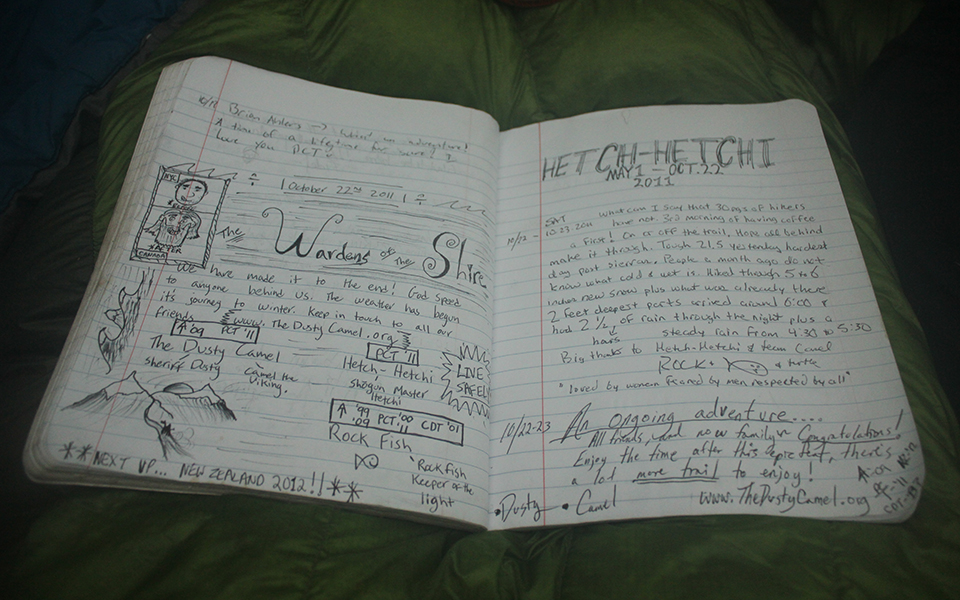 10/17 Brian Anders → what an adventure!
A time of a lifetime for sure!
Love you PCT!
÷ | October 22nd 2011 | ÷
NYC
BEFORE
AFTER
CANADA
The Wardens of the Shire
We have made it to the end! God speed
to anyone behind us. The weather has begun
it's journey to winter. Keep in touch to all our
friends www.The Dusty Camel.org
↑'09 PCT '11
The Dusty Camel
sheriff Dusty
Camel the
Viking.
PCT '11
Hetch-Hetchi
shogun Master
Hetchi
LIVE
SAFELY
↑ '99 PCT '00 CDT '01
'09 PCT '11
Rock Fish
"Rockfish
Keeper of the
light
** NEXT UP... NEW ZEALAND 2012!! **
HETCH-HETCHI
MAY 1 - OCT. 22
2011
10/22 - 10.23.2011 What can I say that 30 pgs of hikers
have not. 3rd morning of having coffee
a first! On or off the trail. Hope all behind
make it through. Tough 21.5 yesterday hardest
day past sierras. People a month ago do not
know what cold & wet is. Hiked though 5 to 6
inches new snow plus what was already there
2 feet deepest parts arived around 6:00 &
had 2 1/2 hours of rain through the night plus a
steady rain from 4:30 to 5:30
Big thanks to Hetch-Hetchi & team Camel
ROCK + & turtle
"loved by women feared by men respected by all"
10/22-23 An ongoing adventure....
All friends, and now family Congratulations!
Enjoy the time after this, there's
a lot more trail to enjoy!
• Dusty • Camel www.TheDustyCamel.org